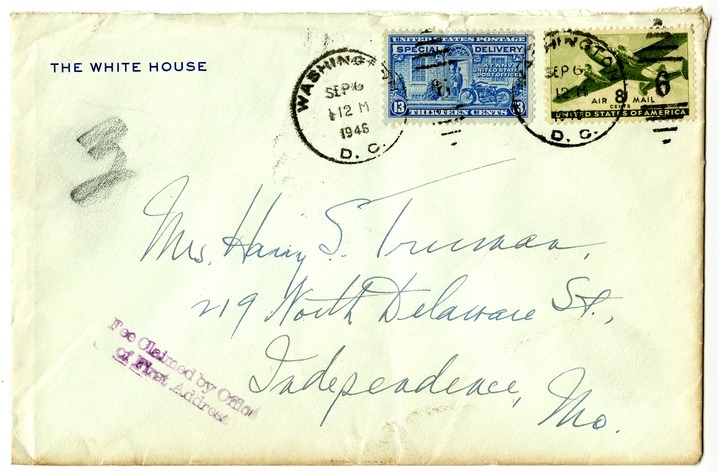 THE WHITE HOUSE
WASHINGTON
SEP 6
12 M
1946
D. C.
UNITED STATES POSTAGE
SPECIAL DELIVERY
UNITED STATES
POST OFFICE
13 13
THIRTEEN CENTS
WASHINGTON
SEP 6
12 M
D. C.
AIR 8 MAIL
CENTS
UNITED STATES OF AMERICA
6
3
Mrs. Harry S. Truman,
219 North Delaware St.,
Independence, Mo.
Fee Claimed by Office
of First Address